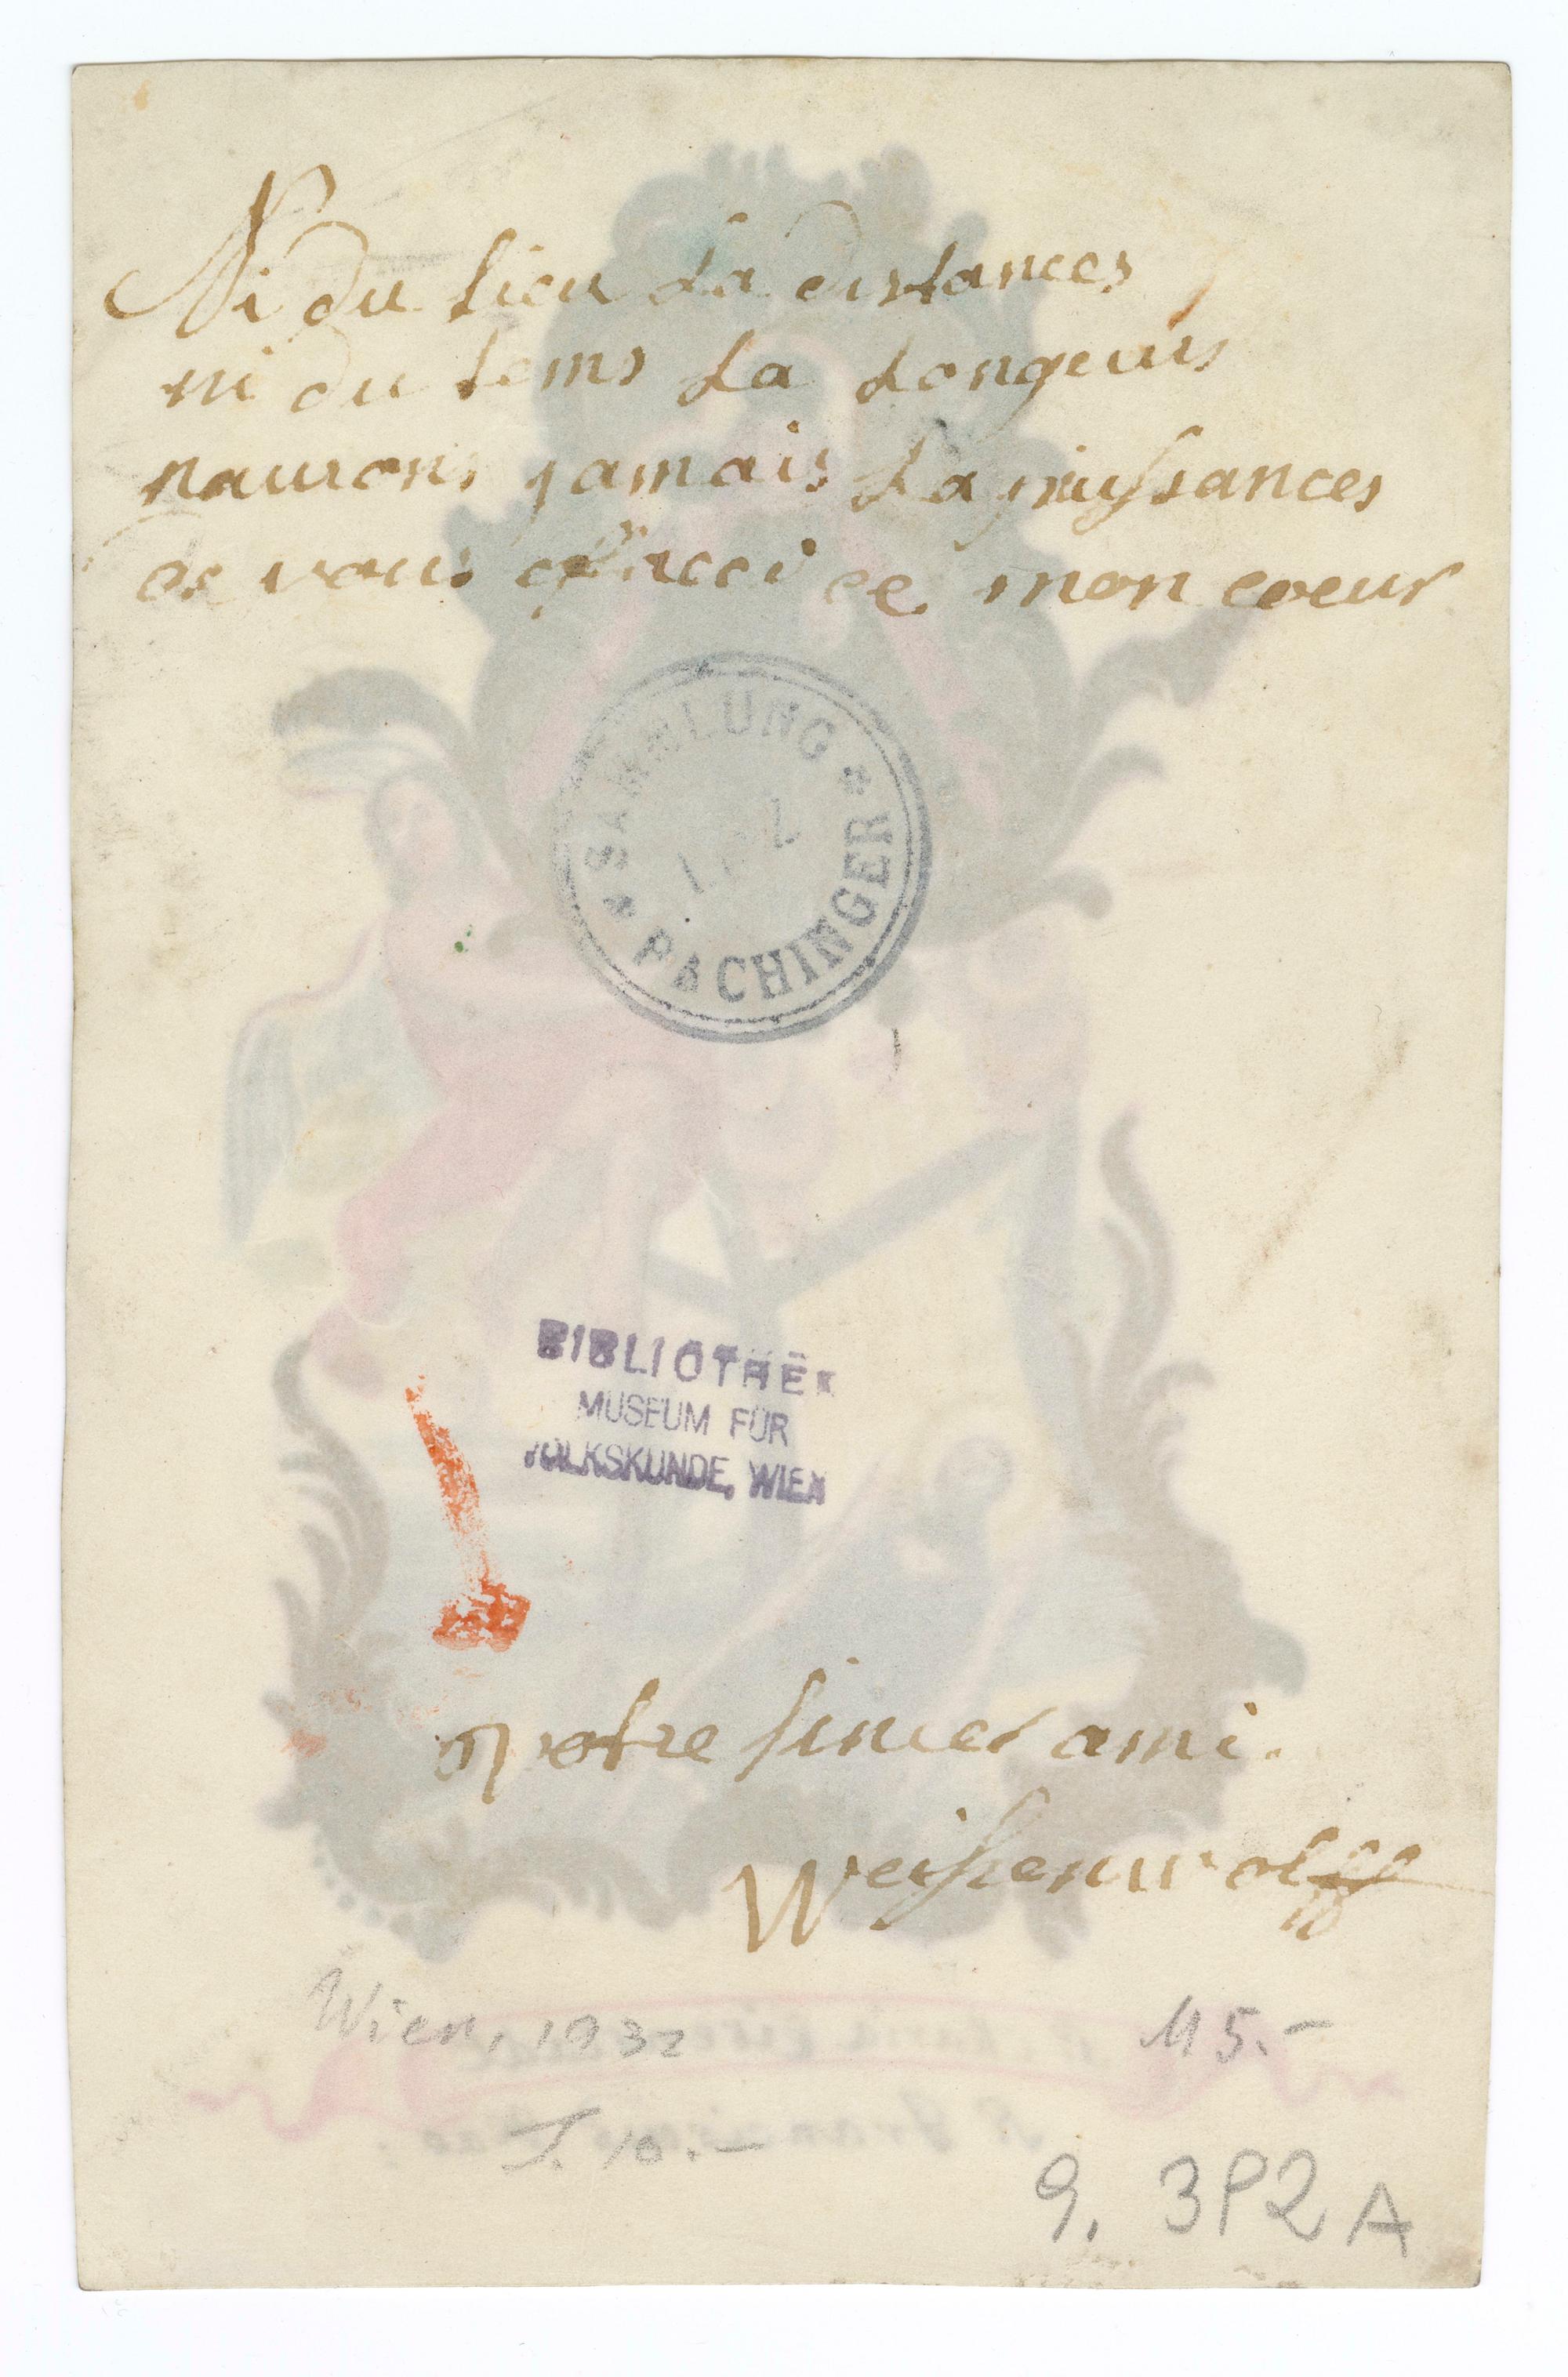 Ni du lieu La distances
ni du tems La Longeurs
naurons jamais La puissances
de vous effacer de mon coeur
SAMMLUNG * PACHINGER *
BIBLIOTHEK
MUSEUM FÜR
VOLKSKUNDE, WIEN
votre sincer ami.
Weissenwolff
Wien, 1932
115.-
10.-
9. 3P2 A